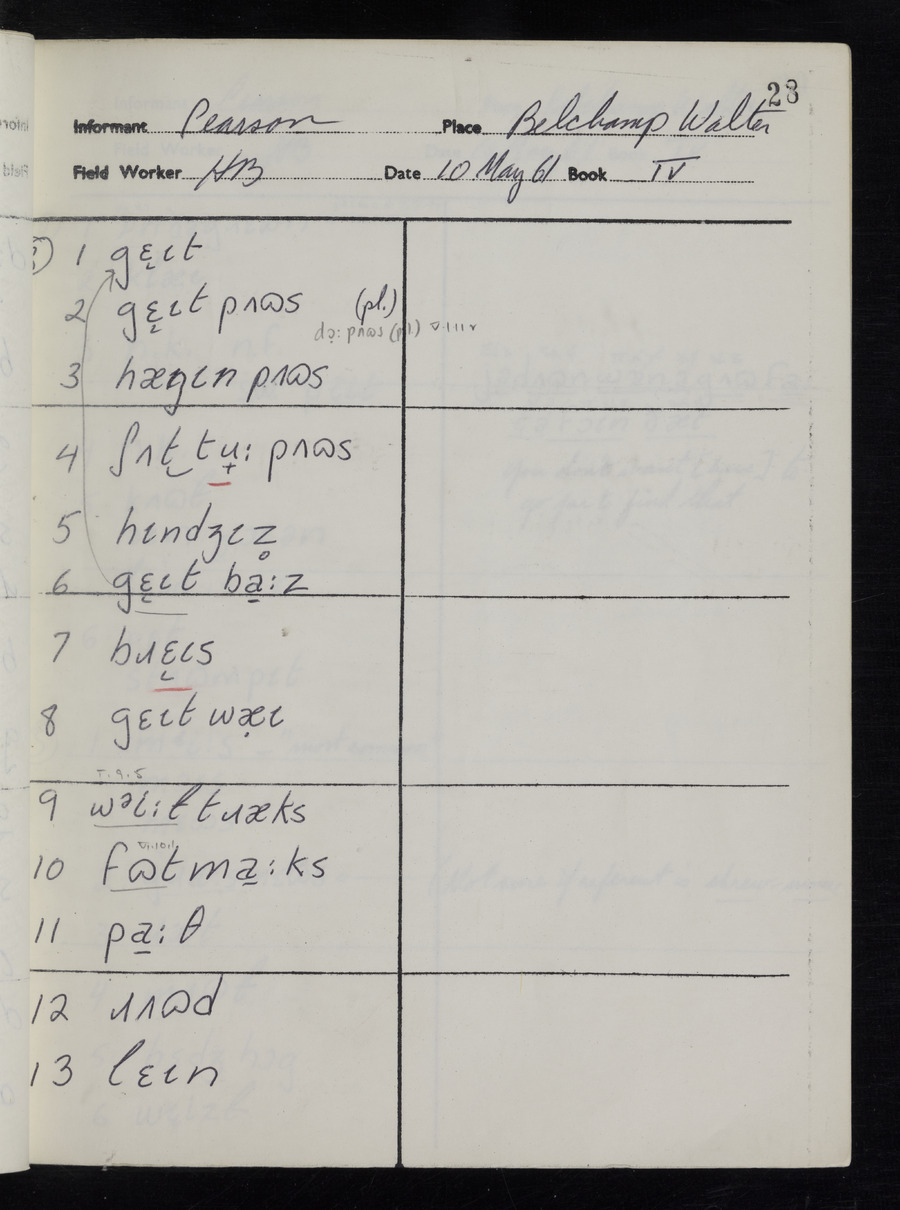 28
Informant Pearson Place Belchamp Walter
Field Worker HB Date 10 May 61 Book IV
3) 1 gɛ̞ɩt
2 gɛ̞ɩt pʌɷs (pl.)
dɔ̣: pʌɷs (pl.) V.1.11v
3 hæŋɩn pʌɷs
4 ʃʌt̮ tu̟: pʌɷs
5 hɩndʒɩz̥
6 gɛ̞ɩt ba̱:z
7 bɹɛ̞ɩs
8 gɛɩt wæ̣ɩ
I.9.5
9 wᵊi̞:ɫ tɹæks
VI.10.1
10 fɷt ma̱:ks
11 pa̱:θ
12 ɹʌɷd
13 lɛɩn